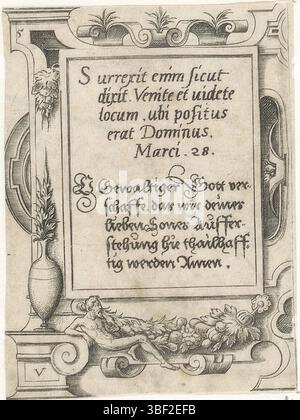 5
Surrexit enim sicut
dixit. Venite et uidete
locum, ubi positus
erat Dominus.
Marci. 28.
Gewaltiger Gott ver-
schaffe, das wir deines
lieben Sones auffer-
stehung hie theilhaff-
tig werden Amen.
V
alamy
Image ID: 3BF2EFB
www.alamy.com